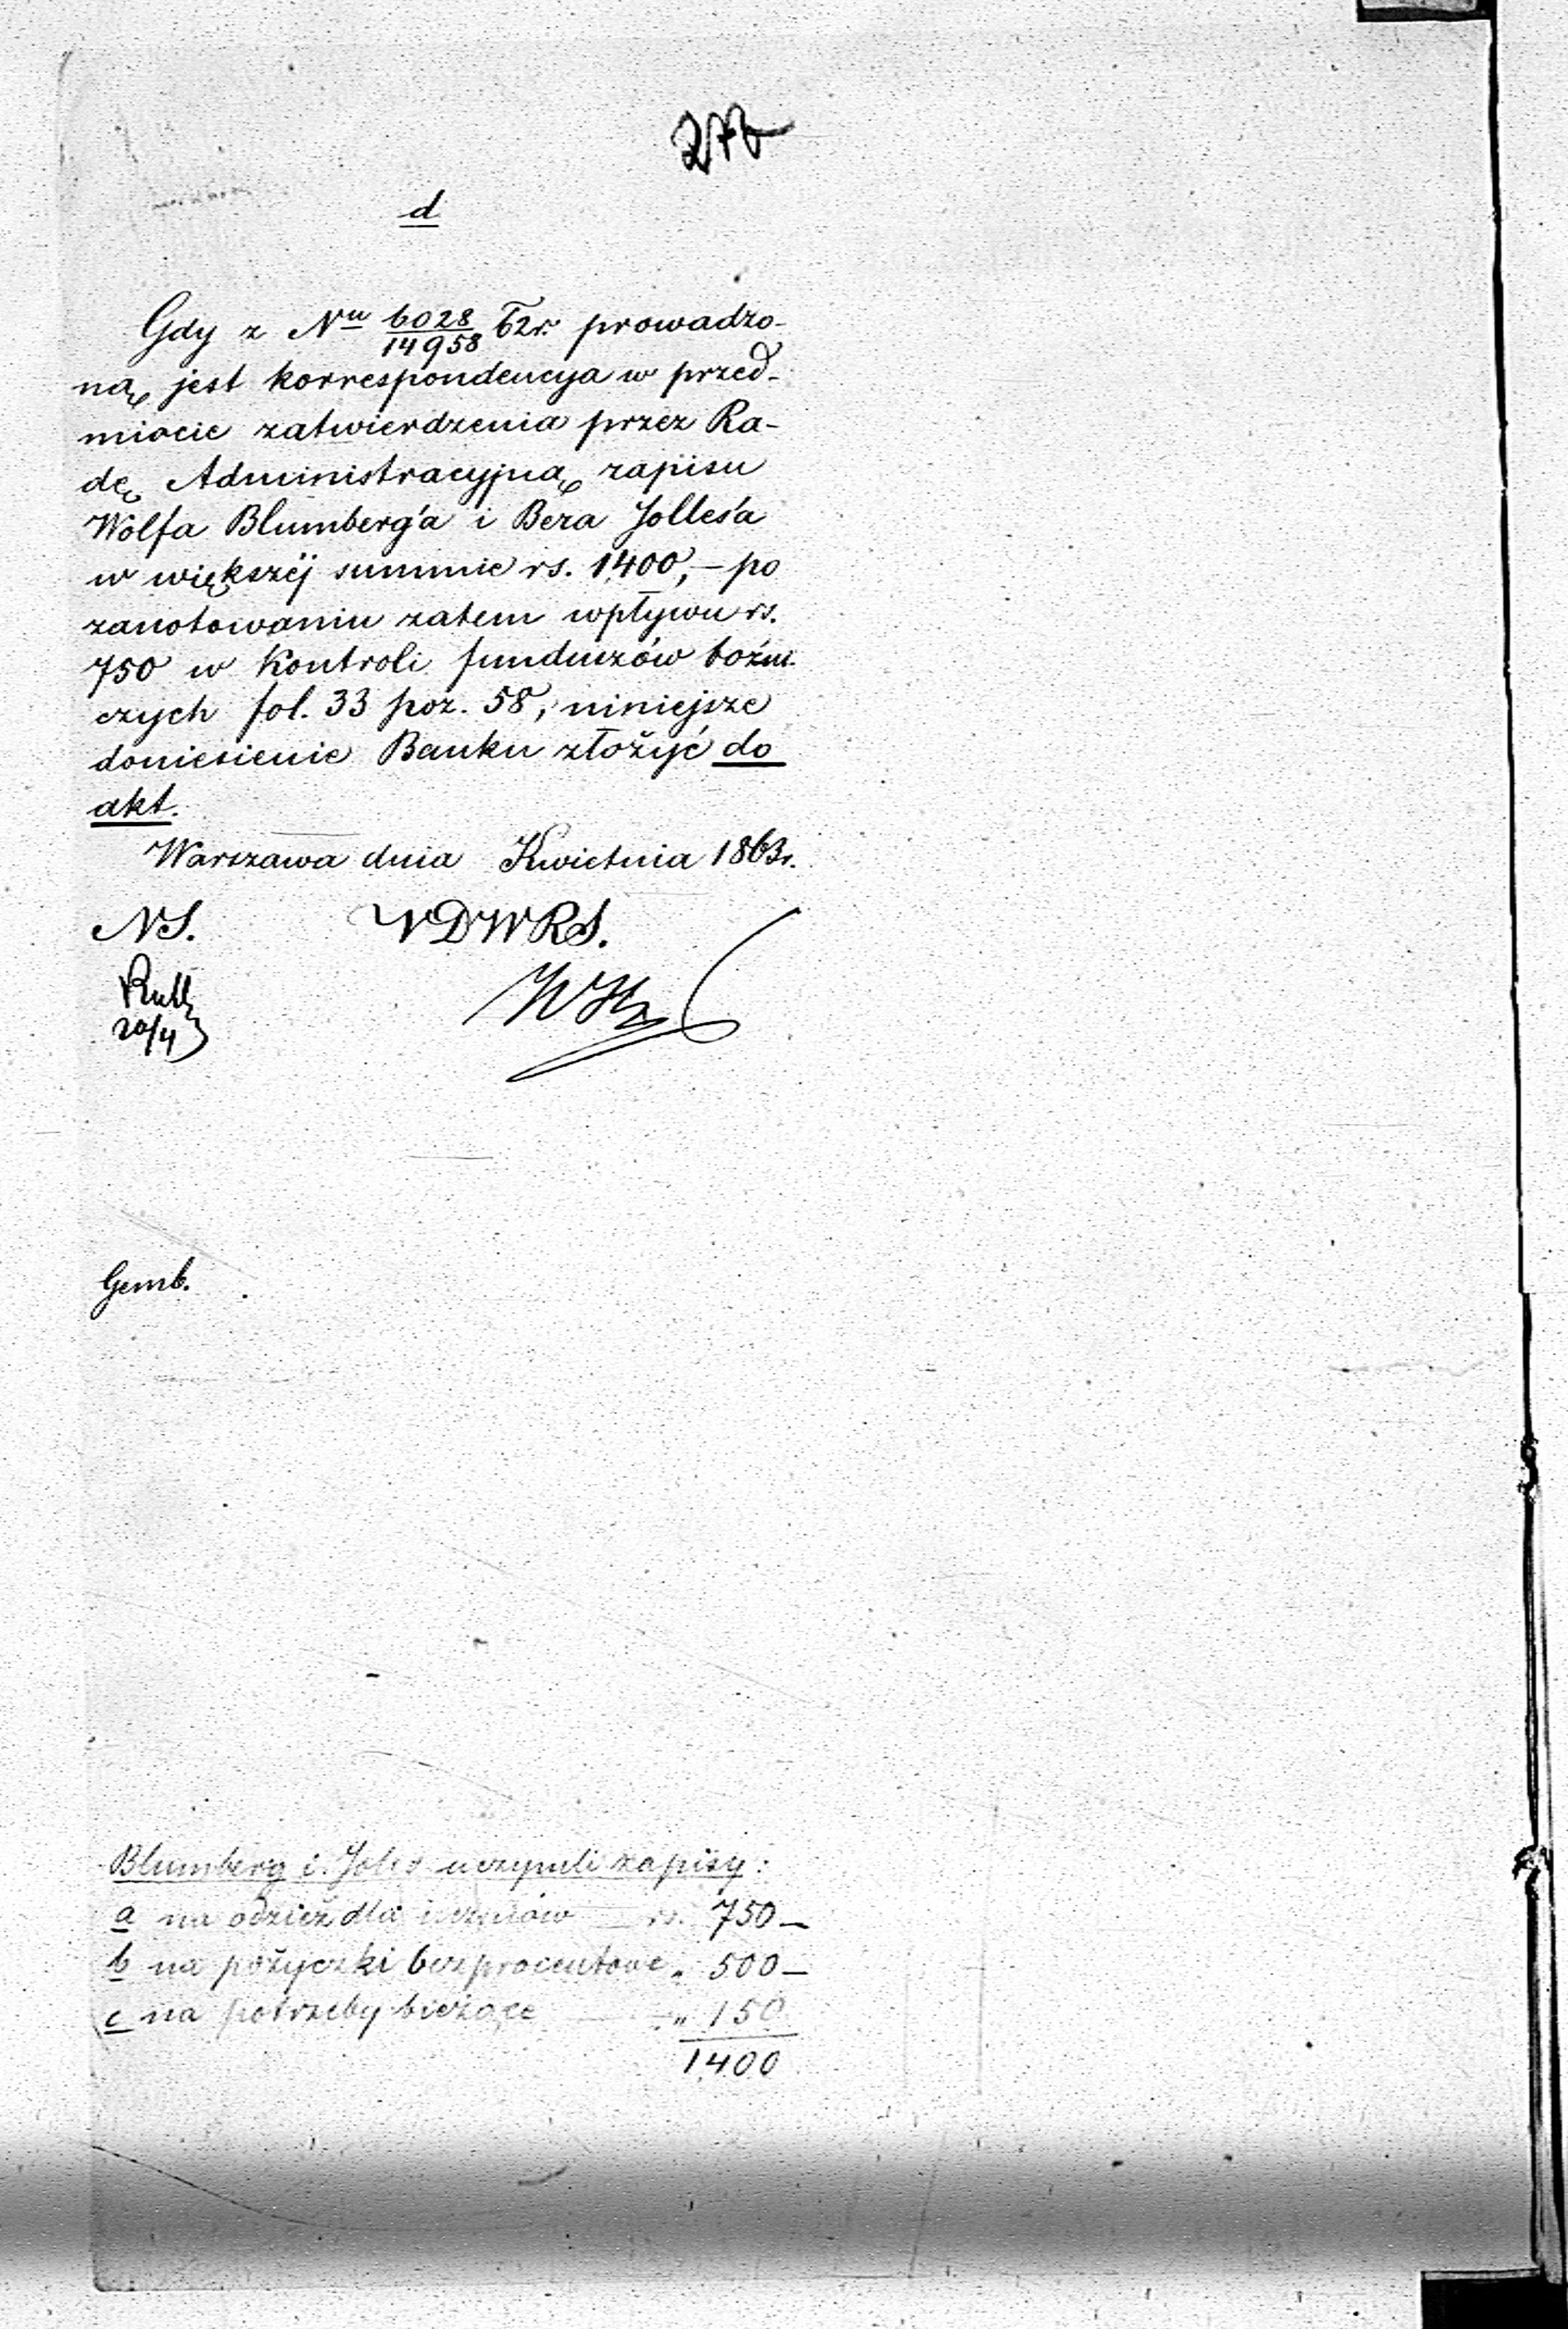 d
Gdy z Nru 6028/14958 62r. prowadzo-
ną jest korrespondencya w przed-
miocie zatwierdzenia przez Ra-
dę Administracyjną zapisu
Wolfa Blumberg'a i Bera Jolles'a
w większéj summie rs. 1400, – po
zanotowaniu zatem wpływu rs.
750 w Kontroli funduszów bóżni-
czych fol. 33 poz. 58, niniejsze
doniesienie Banku złożyć do
akt.
Warszawa dnia Kwietnia 1863r.
NS. VDWRS.
20/4
Gemb.
Blumberg i Joles uczynili zapisy:
a na odzież dla uczniów rs. 750 –
b na pożyczki bezprocentowe „ 500 –
c na potrzeby bieżące – „ 150
1400